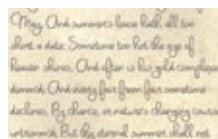 May, And summer's lease hath all too
short a date: Sometime too hot the eye of
heaven shines, And often is his gold complexion
dimm'd; And every fair from fair sometime
declines, By chance, or nature's changing course
untrimm'd; But thy eternal summer shall not